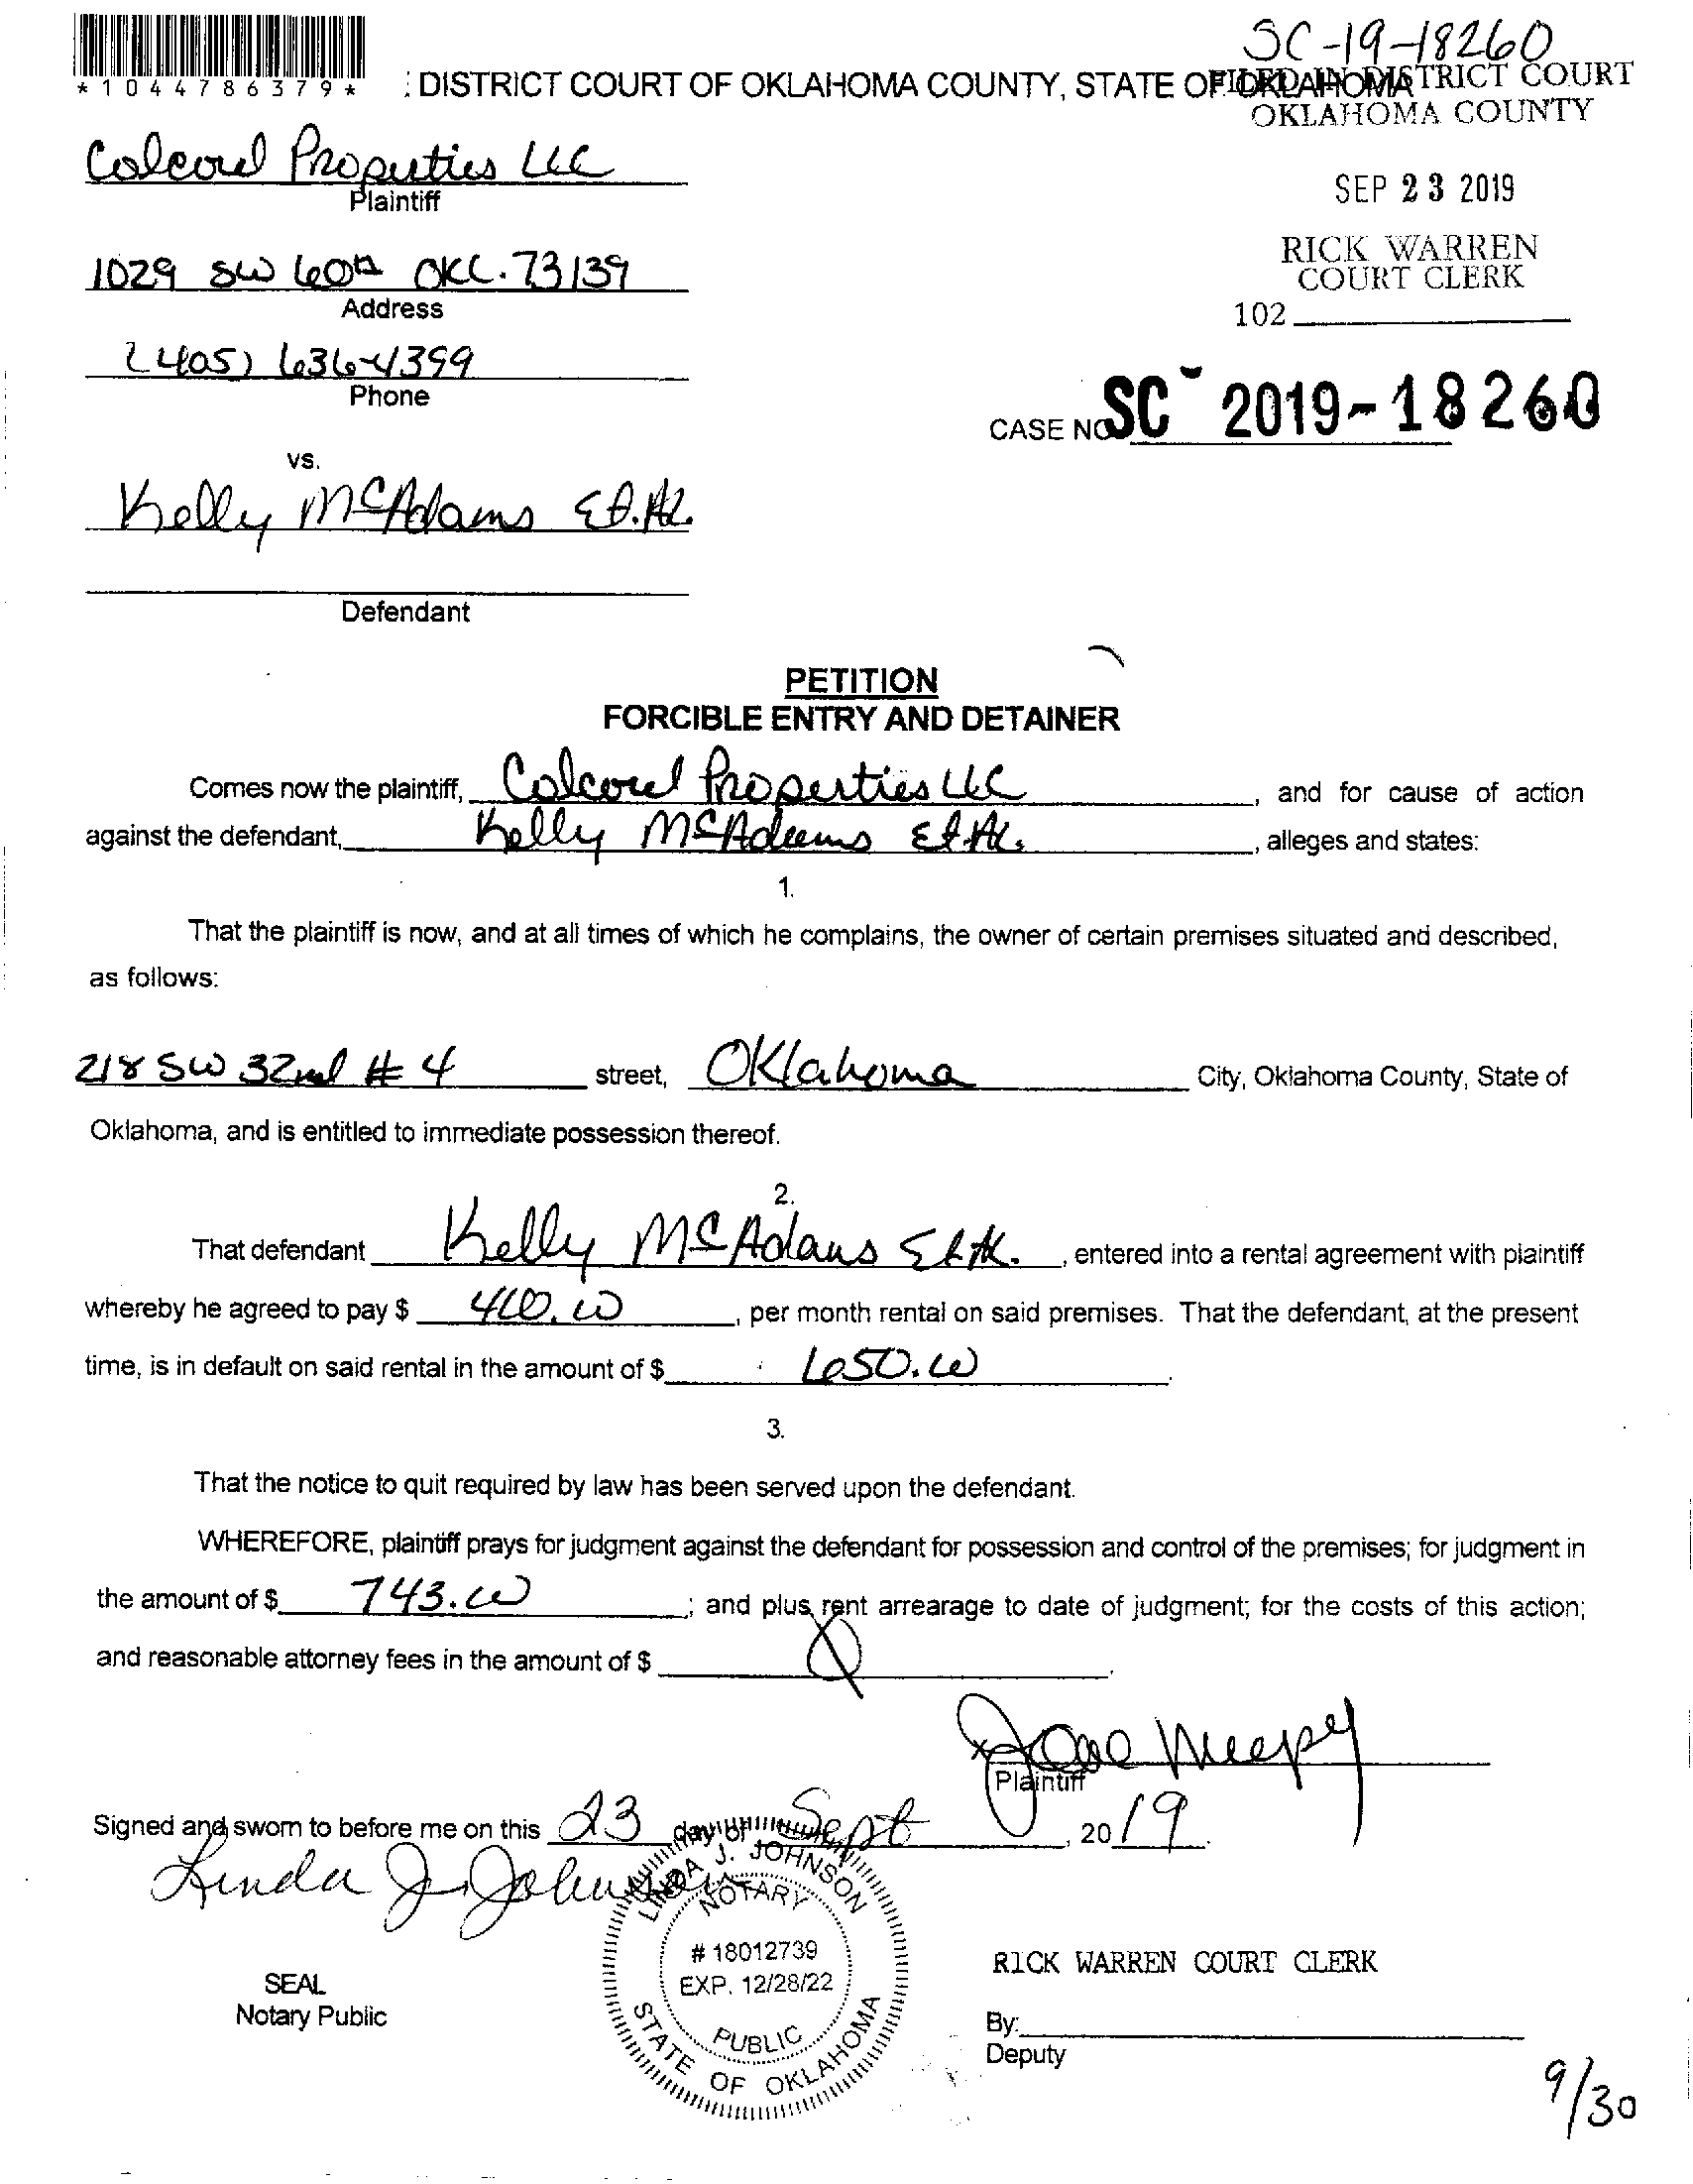 SC-19-18260
*1044786379*
: DISTRICT COURT OF OKLAHOMA COUNTY, STATE OF OKLAHOMA
FILED IN DISTRICT COURT
OKLAHOMA COUNTY
Colcord Properties LLC
Plaintiff
SEP 23 2019
RICK WARREN
COURT CLERK
102
1029 SW 60th OKC. 73139
Address
(405) 636-4399
Phone
CASE NO SC - 2019-18260
vs.
Kelly McAdams Et. Al.
Defendant
PETITION
FORCIBLE ENTRY AND DETAINER
Comes now the plaintiff, Colcord Properties LLC, and for cause of action
against the defendant, Kelly McAdams Et Al., alleges and states:
1.
That the plaintiff is now, and at all times of which he complains, the owner of certain premises situated and described,
as follows:
218 SW 32nd # 4 street, Oklahoma City, Oklahoma County, State of
Oklahoma, and is entitled to immediate possession thereof.
2.
That defendant Kelly McAdams Et Al., entered into a rental agreement with plaintiff
whereby he agreed to pay $ , per month rental on said premises. That the defendant, at the present
time, is in default on said rental in the amount of $ 650.00.
3.
That the notice to quit required by law has been served upon the defendant.
WHEREFORE, plaintiff prays for judgment against the defendant for possession and control of the premises; for judgment in
the amount of $ 743.00; and plus rent arrearage to date of judgment; for the costs of this action;
and reasonable attorney fees in the amount of $
Plaintiff
Signed and sworn to before me on this 23 day of Sept, 2019.
Linda J. Johnson
LINDA J. JOHNSON
NOTARY
# 18012739
EXP. 12/28/22
PUBLIC
STATE OF OKLAHOMA
SEAL
Notary Public
RICK WARREN COURT CLERK
By:
Deputy
9/30